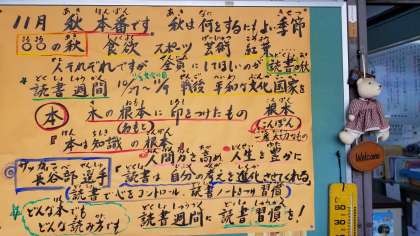 11月 秋本番です。秋は何をするにもよい季節
○○の秋 食欲 スポーツ 芸術 紅葉
人それぞれですが 全員にしてほしいのが 読書の秋
読書週間 10/27〜11/9 戦後 平和な文化国家を
本 木の根本に印をつけたもの 根本
(ねもと) こんぽん
一番大切なもの
『本は知識の根本
人間力を高め、人生を豊かに
サッカー
長谷部選手 『読書は自分の考えを進化させてくれる
(読書で心をコントロール、読書
どんな本でも
どんな読み方でも 読書週間に読書習慣を!
Welcome